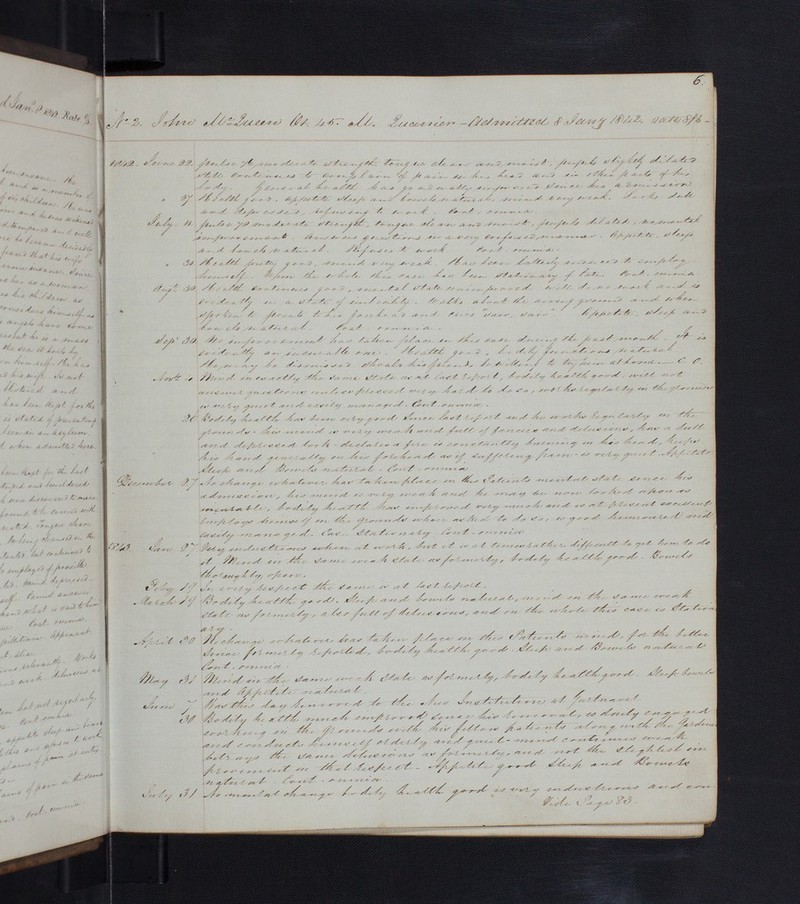 6.
No 2. John McQueen Æt. 45. M. Quarrier - Admitted 8 Jany 1842 rate 8/6 -
1842. June 22 Pulse 76 moderate strength tongue clean and moist, pupils slightly dilated
still continues to complain of pain in his head and in other parts of his
body. General health has gradually improved since his admission
" 27 Health good, appetite sleep and bowels natural, mind very weak. Looks dull
and depressed, refusing to work. Cont. omnia
July 11 Pulse 70 moderate strength, tongue clean and moist, pupils dilated, no mental
improvement. Answers questions in a very confused manner. Appetite, sleep
and bowels natural. Refuses to work Cont omnia.
" 30 Health pretty good, mind very weak. Has been latterly to employ
himself. Upon the whole this case has been stationary of late. Cont. omnia
Augt 30 Health continues good, mental state unimproved will do no work and is
evidently in a state of imbecility. Walks about the airing ground and when
spoken to points to his forehead and cries "sair, sair" Appetite, sleep and
bowels natural. Cont. omnia
Sept 30 No improvement has taken place in this case during the past month. It is
evidently an incurable case. Health good, bodily functions natural
He may be dismissed should his friends be willing to take him at home. C. O.
Novr 10 Mind in exactly the same state as at last report, bodily health good. will not
answer questions unless pressed very hard to do so, works regularly in the grounds
is very quiet and easily managed. Cont. omnia.
30 Bodily health has been very good since last report and he works regularly in the
grounds. his mind is very weak and full of fancies and delusions, has a dull
and depressed look declares a fire is constantly burning in his head, keeps
his hand generally on his forehead as if suffering pain - is very quiet. Appetite
Sleep and Bowels natural. Cont. omnia
December 27 No change whatever has taken place in this Patients mental state since his
admission, his mind is very weak and he may be now looked upon as
incurable, bodily health has improved very much and is at present excellent
Employs himself in the grounds when asked to do so, is good humoured and
easily managed. Case Stationary Cont. omnia
1843. Jan 27 Very industrious when at work, but it is at times rather difficult to get him to do
it Mind in the same weak state as formerly, bodily health good. Bowels
thoroughly open.
Feby 19 In every respect the same as at last report.
March 19 Bodily health good. Sleep and bowels natural, mind in the same weak
state as formerly, also full of delusions, and on the whole this case is Station
ary.
April 30 No change whatever has taken place in this Patients mind, for the better
since formerly reported, bodily health good Sleep and Bowels natural
Cont. omnia.
May 31 Mind in the same weak state as formerly, bodily health good. Sleep bowels
and Appetite natural
June 7 Was this day removed to the New Institution at Gartnavel
30 Bodily health much improved since his removal, is busily engaged
working in the grounds with his fellow patients along with the Gardener
and conducts himself orderly and quiet - mind continues weak
betrays the same delusions as formerly, and not the slightest im
provement in that respect - Appetite good Sleep and Bowels
natural Cont. omnia
July 31 No mental change bodily health good is very industrious and con
Vide Page 83.